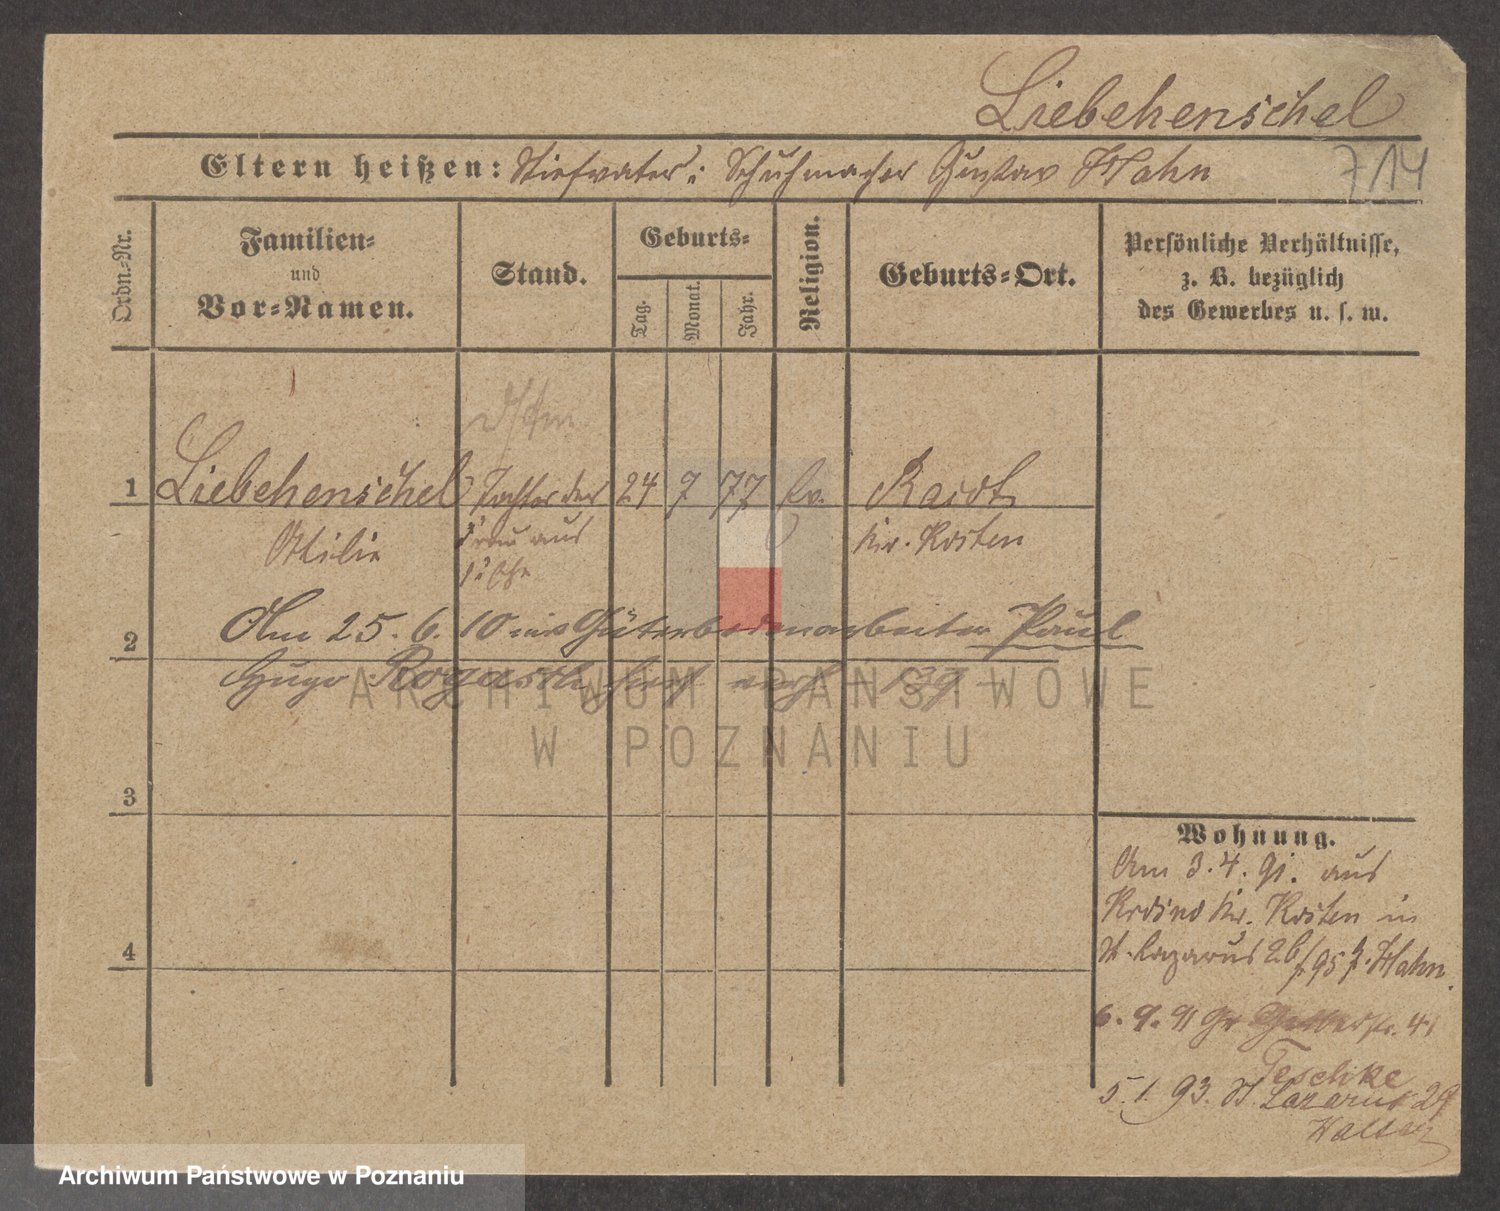 Liebehenschel
Eltern heißen: Stiefvater: Schuhmacher Gustav Hahn
7/14
Ordn.-Nr.
Familien-
und
Vor-Namen.
Stand.
Geburts-
Tag.
Monat.
Jahr.
Religion.
Geburts-Ort.
Persönliche Verhältnisse,
z. B. bezüglich
des Gewerbes u. s. w.
1 Liebehenschel Tochter der 24 9 77 Ev. Raidt
Ottilie Frau aus Kr. Kosten
1r Ehe
2 Am 25. 6. 10 mit Güterbodenarbeiter Paul
Hugo
3
4
Wohnung.
Am 3. 4. 91. aus
Kr. Kosten in
St. Lazarus 26/95 b. Hahn.
6. 9. 91 Gr 41
Teschke
5. 1. 93. St. Lazarus 29
ARCHIWUM PAŃSTWOWE
W POZNANIU
Archiwum Państwowe w Poznaniu